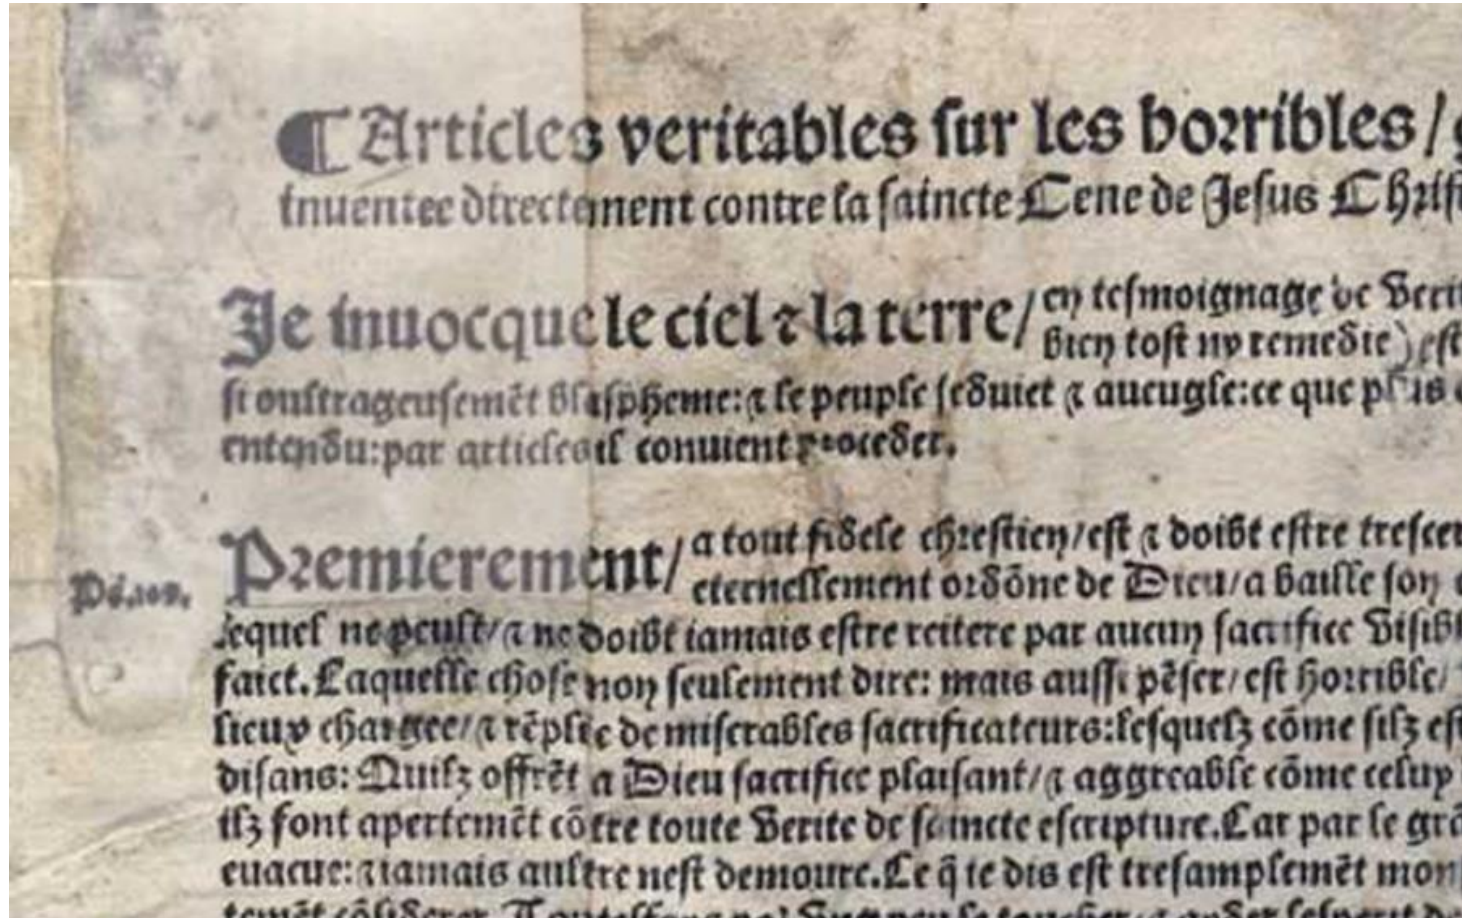 ¶ Articles veritables sur les horribles/
inuentee directement contre la saincte Cene de Jesus
Je inuocque le ciel ⁊ la terre/ en tesmoignage de
bien tost ny remedie) est
si oultrageusemẽt blaspheme: ⁊ le peuple seduict ⁊ aueugle: ce que plus
entendu: par articles il conuient proceder.
Premierement/ a tout fidele chrestien/ est ⁊ doibt estre
eternellement ordõne de Dieu/ a baille son
lequel ne peult/ ⁊ ne doibt iamais estre reitere par aucun sacrifice
faict. Laquelle chose non seulement dire: mais aussi pẽser/ est horrible/
lieux chargee/ ⁊ rẽplie de miserables sacrificateurs: lesquelz cõme silz
disans: Quilz offrẽt a Dieu sacrifice plaisant/ ⁊ aggreable cõme celuy
ilz font apertemẽt cõtre toute Verite de saincte escripture. Car par le
euacue: ⁊ iamais aultre nest demoure. Ce q̃ ie dis est tresamplemẽt